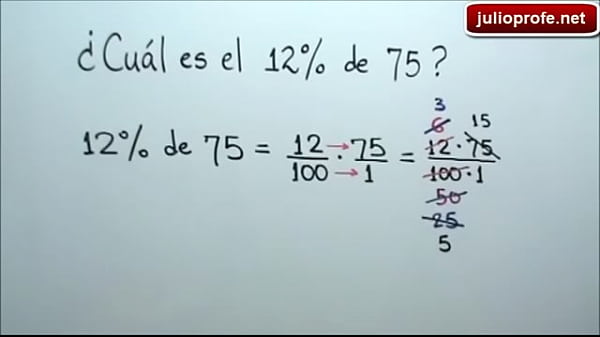 julioprofe.net
¿Cuál es el 12% de 75?
3
6 15
12% de 75 = 12/100 → · 75/1 → = 12 · 75
100 · 1
50
25
5